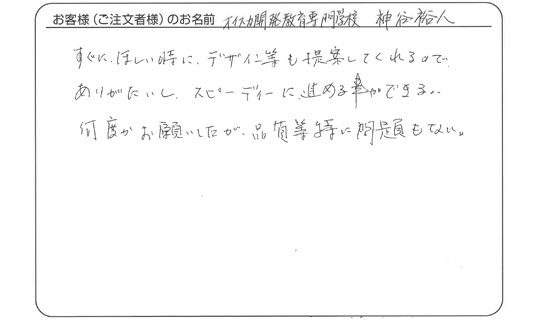 お客様（ご注文者様）のお名前 オイスカ開発教育専門学校 神谷裕人
すぐに、ほしい時に、デザイン等も提案してくれるので、
ありがたいし、スピーディーに、進める事ができる。
何度かお願いしたが、品質等特に問題もない。